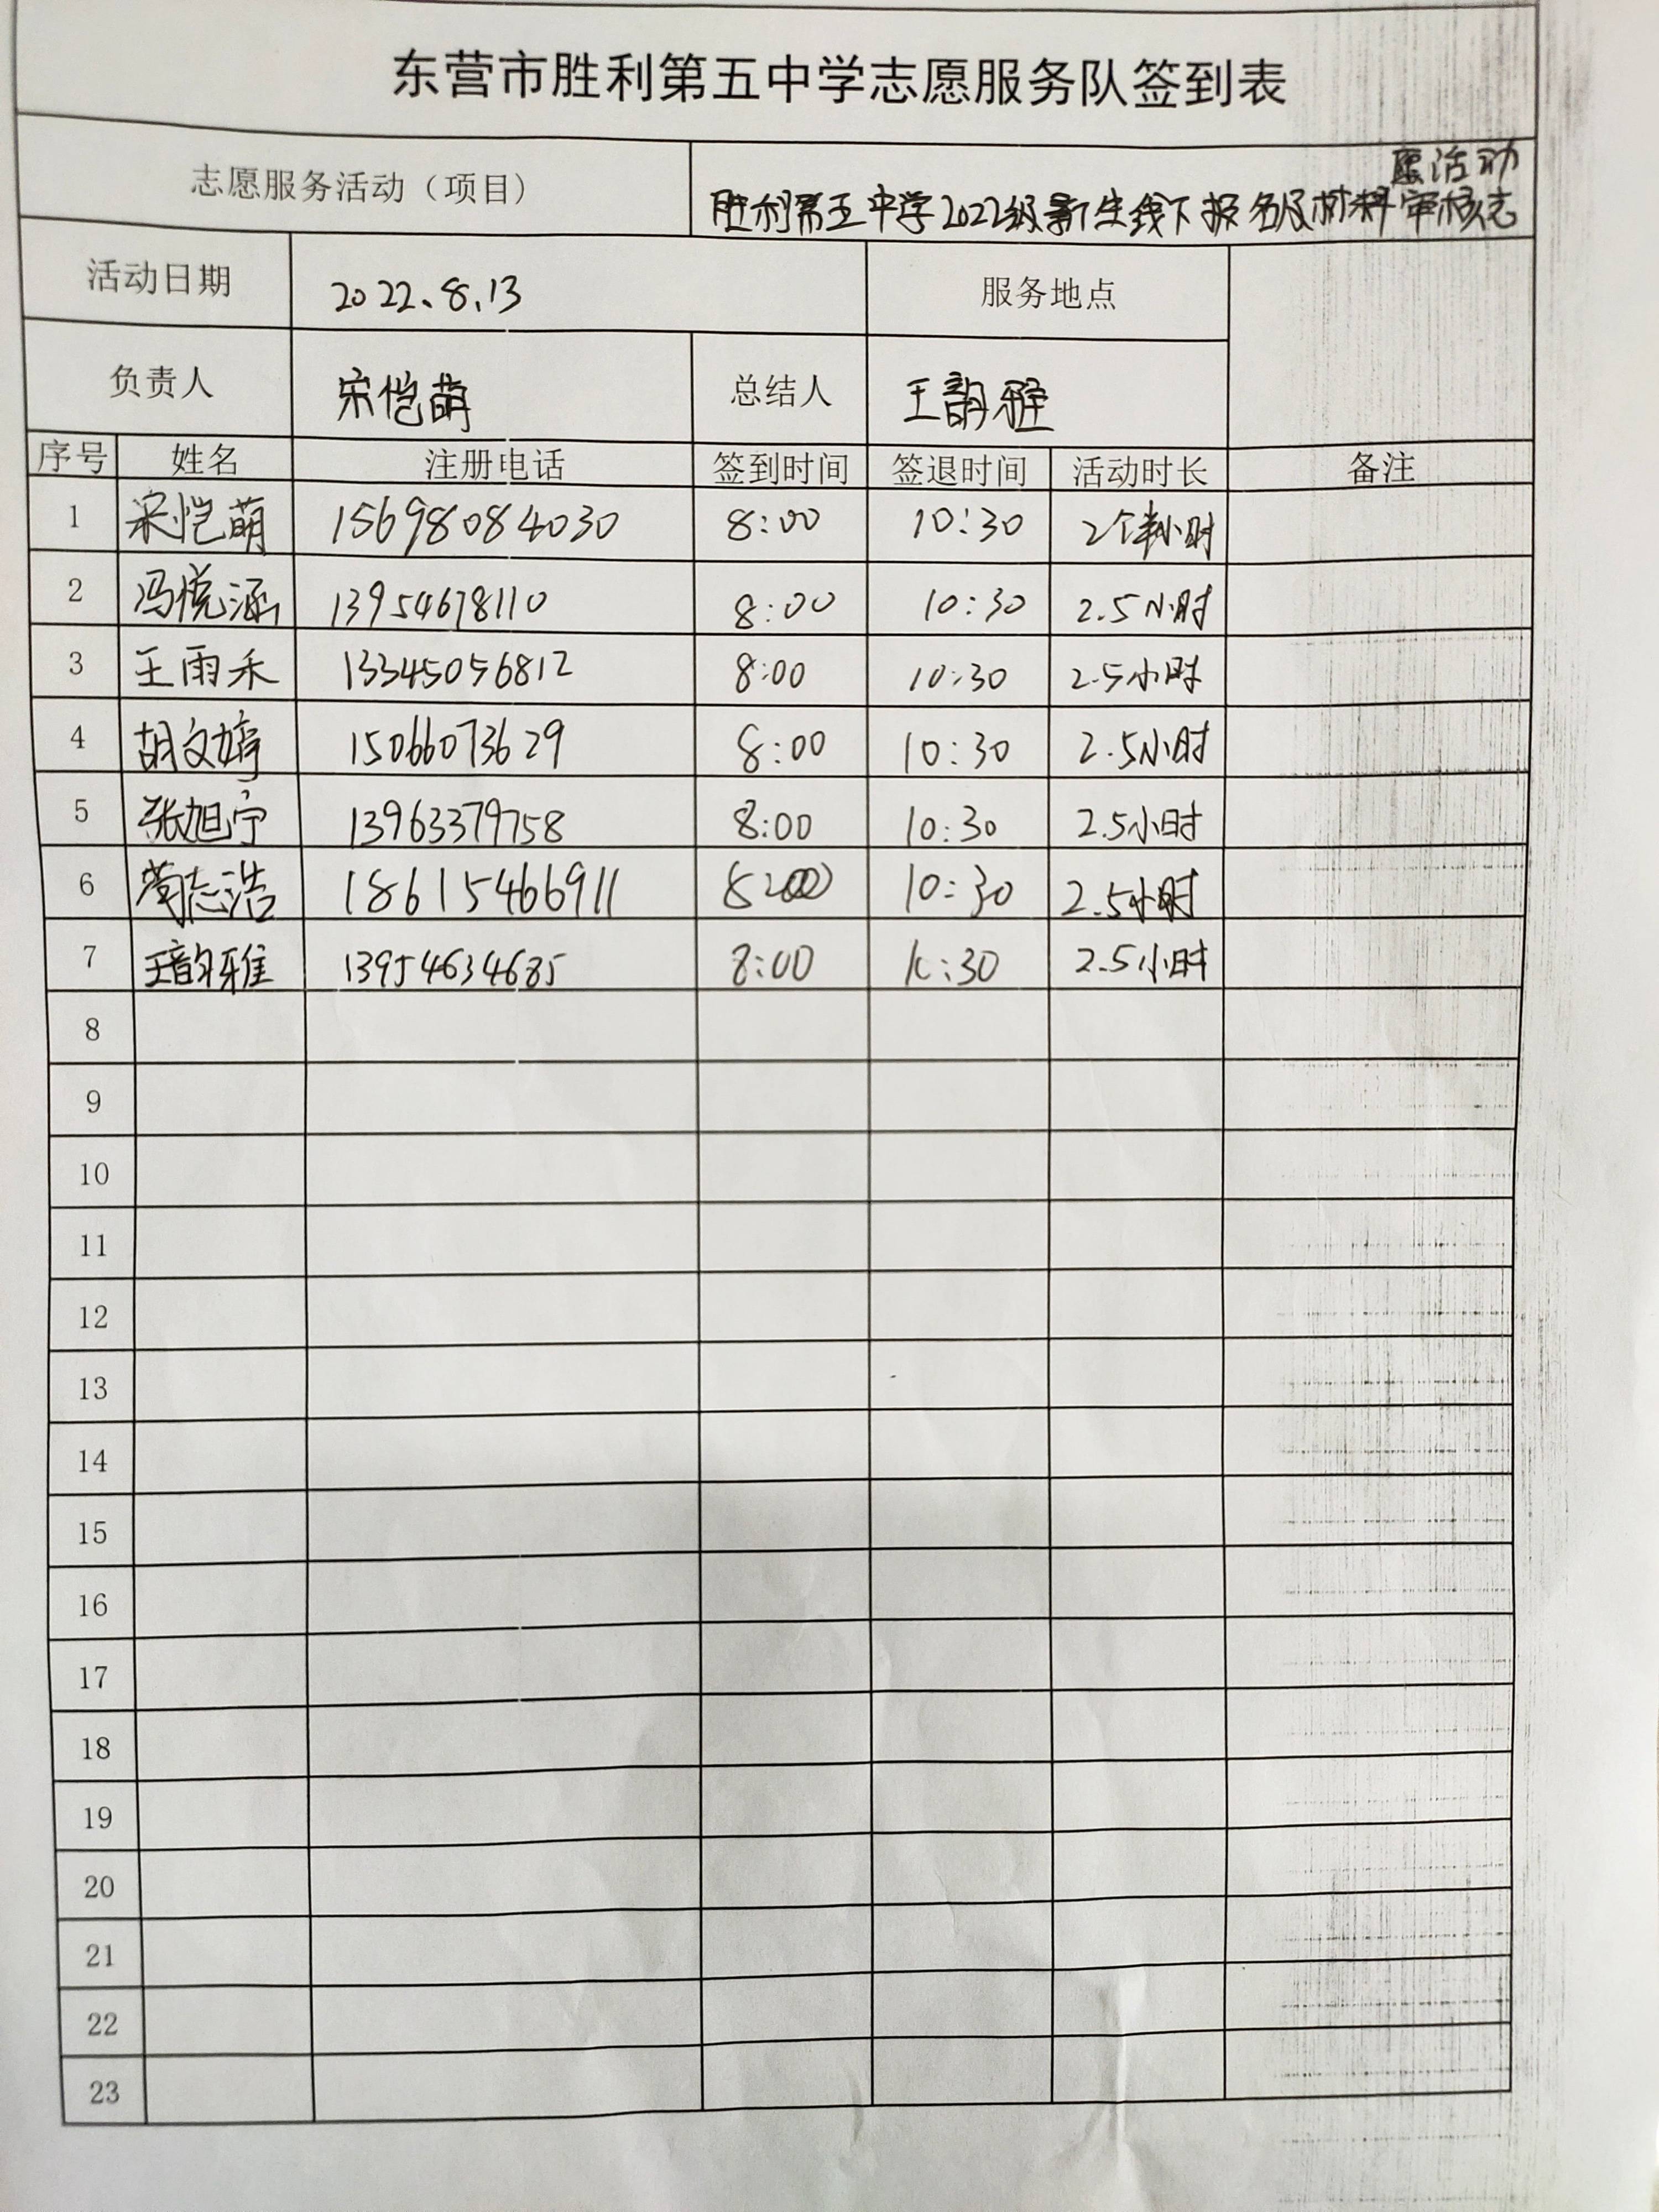 东营市胜利第五中学志愿服务队签到表
志愿服务活动（项目） 胜利第五中学2022级新生线下报名及材料审核志
愿活动
活动日期 2022.8.13 服务地点
负责人 宋恺萌 总结人 王韵雅
序号 姓名 注册电话 签到时间 签退时间 活动时长 备注
1 宋恺萌 15698084030 8:00 10:30 2个半小时
2 冯悦涵 13954678110 8:00 10:30 2.5小时
3 王雨禾 13345056812 8:00 10:30 2.5小时
4 胡文婷 15066073629 8:00 10:30 2.5小时
5 张旭宁 13963379758 8:00 10:30 2.5小时
6 志浩 18615466911 8:00 10:30 2.5小时
7 王韵雅 13954634685 8:00 10:30 2.5小时
8
9
10
11
12
13
14
15
16
17
18
19
20
21
22
23